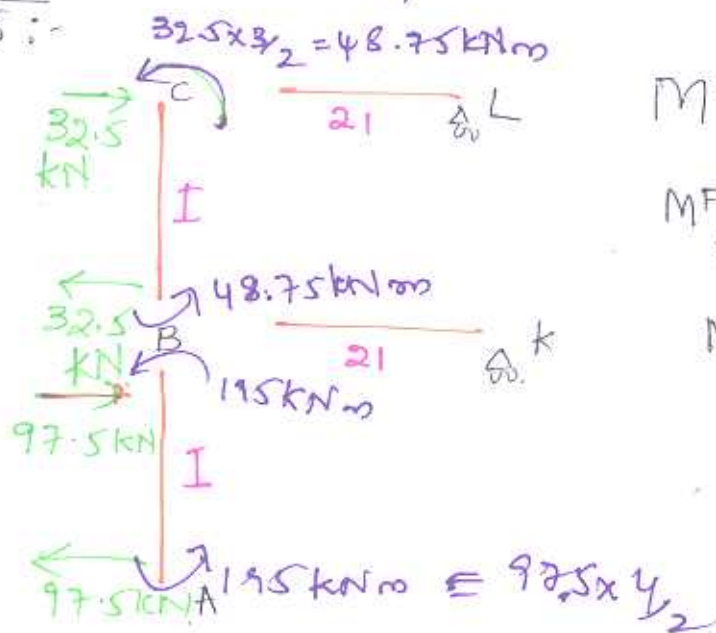 5:-
32.5x3/2 = 48.75kNm
C
32.5
kN
2I
L
M
I
MF
48.75kNm
32.5
kN
B
2I
K
195kNm
97.5kN
I
97.5kN
A
195kNm = 97.5x4/2